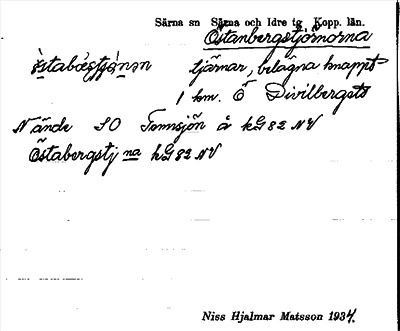 Särna sn Särna och Idre tg Kopp. län.
Östanbergstjörnorna
tjärnar, belägna knappt
1 km. Ö Divilbergets
N ände SO Tennsjön å kG 82 NV
Östabergstj na kG 82 NV
Niss Hjalmar Matsson 1934.